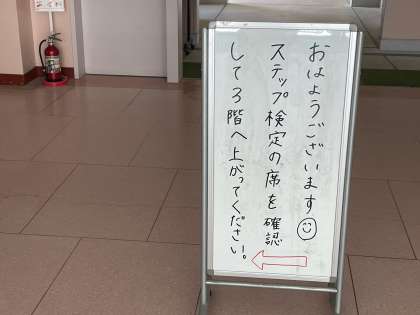 おはようございます
ステップ検定の席を確認
して3階へ上がってください。